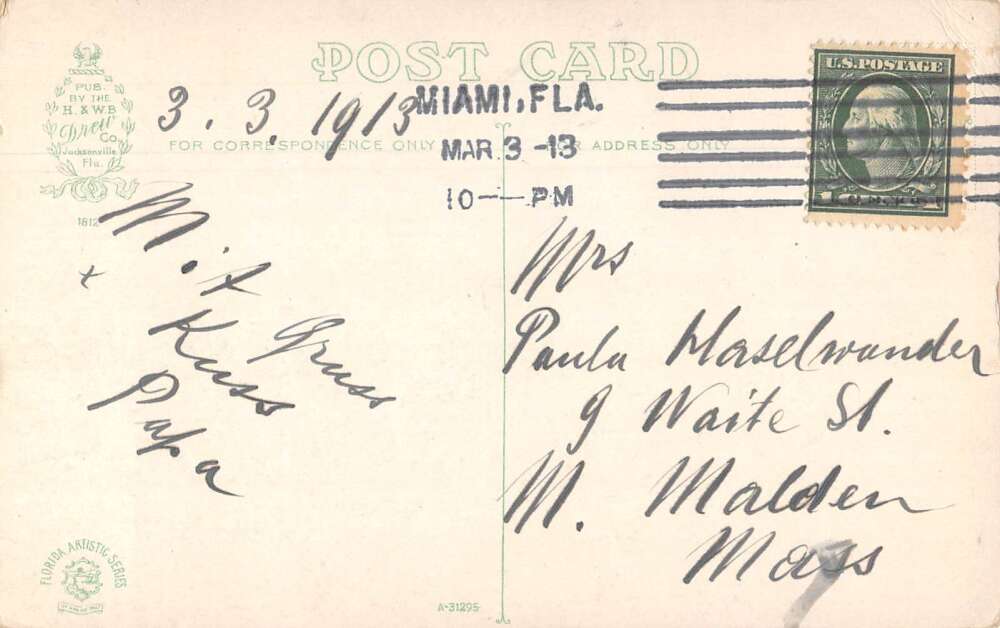 POST CARD
PUB.
BY THE
H. & W.B.
Drew
Co.
Jacksonville,
Fla.
1812
FOR CORRESPONDENCE ONLY
FOR ADDRESS ONLY
3. 3. 1913
MIAMI, FLA.
MAR 3 -13
10 — PM
U.S. POSTAGE
1 1
M. it Gruss
+ Kuss
Papa
Mrs
Paula Haselwander
9 Waite St.
M. Malden
Mass
FLORIDA ARTISTIC SERIES
A-31295